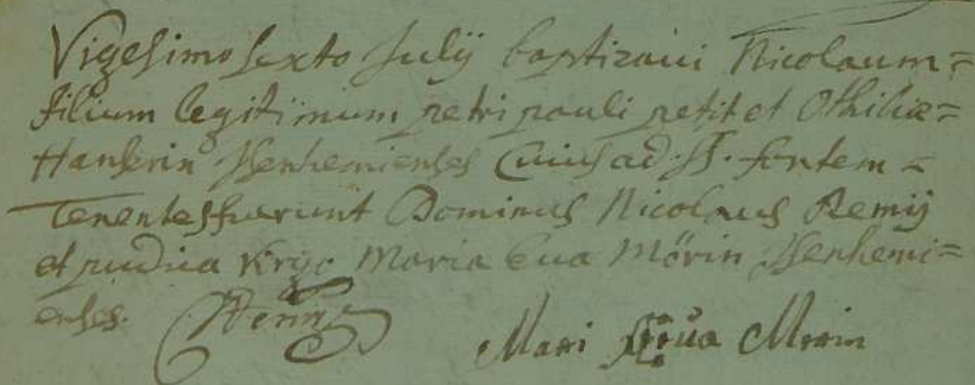 Vigesimo sexto Julij baptizavi Nicolaum =
filium legitimum petri pauli petit et Othiliæ =
Hanserin Isenhemienses Cuius ad S. fontem =
Tenentes fuerunt Dominus Nicolaus Remij
et pudica virgo Maria Eva Mörin Isenhemi=
enses. Remy
Mari Eva Morin